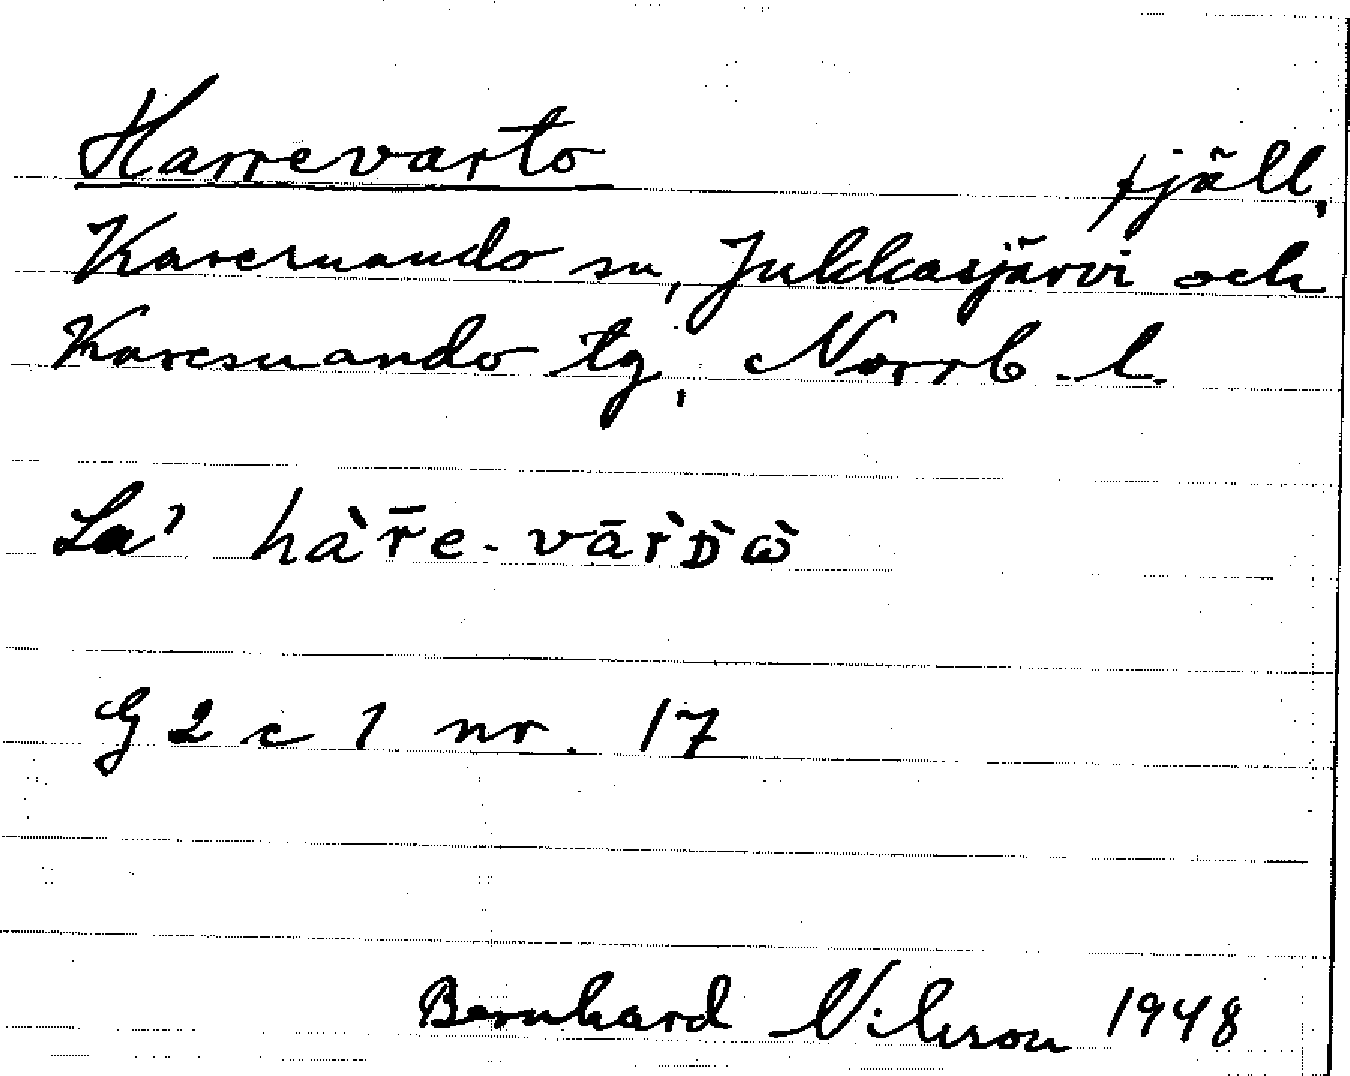 Harrevarto fjäll,
Karesuando sn, Jukkasjärvi och
Karesuando tg, Norrb. l.
La' hàr̄e-vārD̀ὼ
G 2 c 1 nr. 17
Bernhard Nilsson 1948